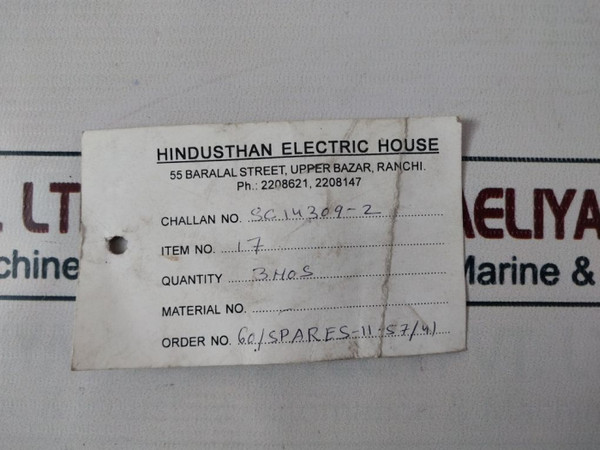 HINDUSTHAN ELECTRIC HOUSE
55 BARALAL STREET, UPPER BAZAR, RANCHI.
Ph.: 2208621, 2208147
CHALLAN NO. SC14309-2
ITEM NO. 17
QUANTITY 3NOS
MATERIAL NO. -
ORDER NO. 60/SPARES-11-57/41
L LT
AELIYA
chine
Marine &